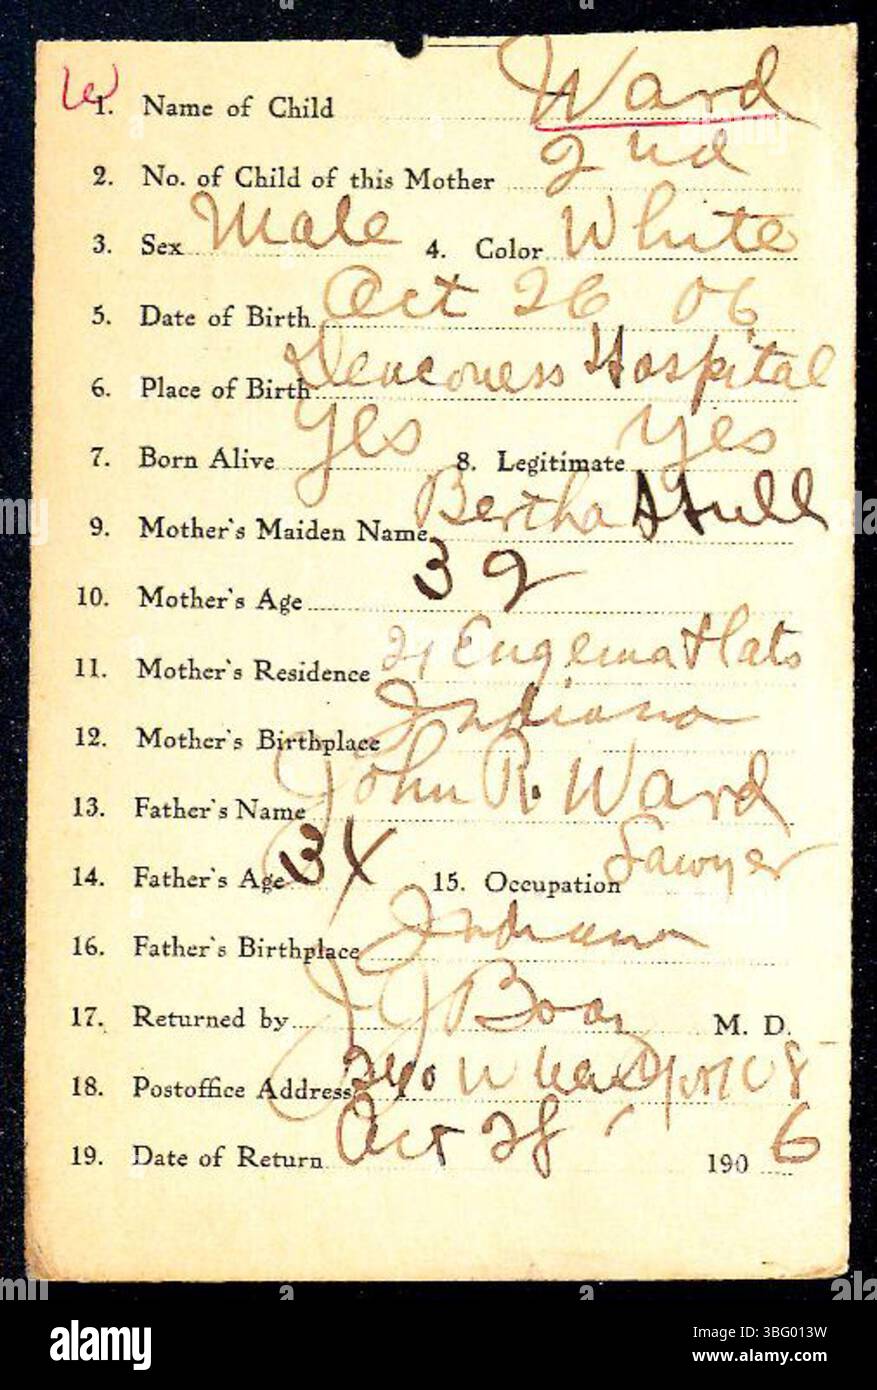 W
1. Name of Child Ward
2. No. of Child of this Mother 2nd
3. Sex Male 4. Color White
5. Date of Birth Oct 26 06
6. Place of Birth Deaconess Hospital
7. Born Alive Yes 8. Legitimate Yes
9. Mother's Maiden Name Bertha Hull
10. Mother's Age 32
11. Mother's Residence 21 Eugenia Flats
12. Mother's Birthplace Indiana
13. Father's Name John R. Ward
14. Father's Age 34 15. Occupation Sawyer
16. Father's Birthplace Indiana
17. Returned by J J Boaz M. D.
18. Postoffice Address 240
19. Date of Return Oct 28 190 6
alamy
Image ID: 3BG013W
www.alamy.com